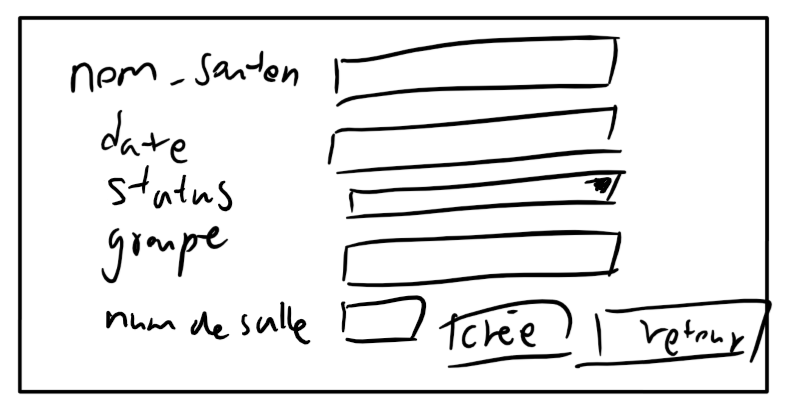 nom_santen
date
status
groupe
num de salle
crée
retour